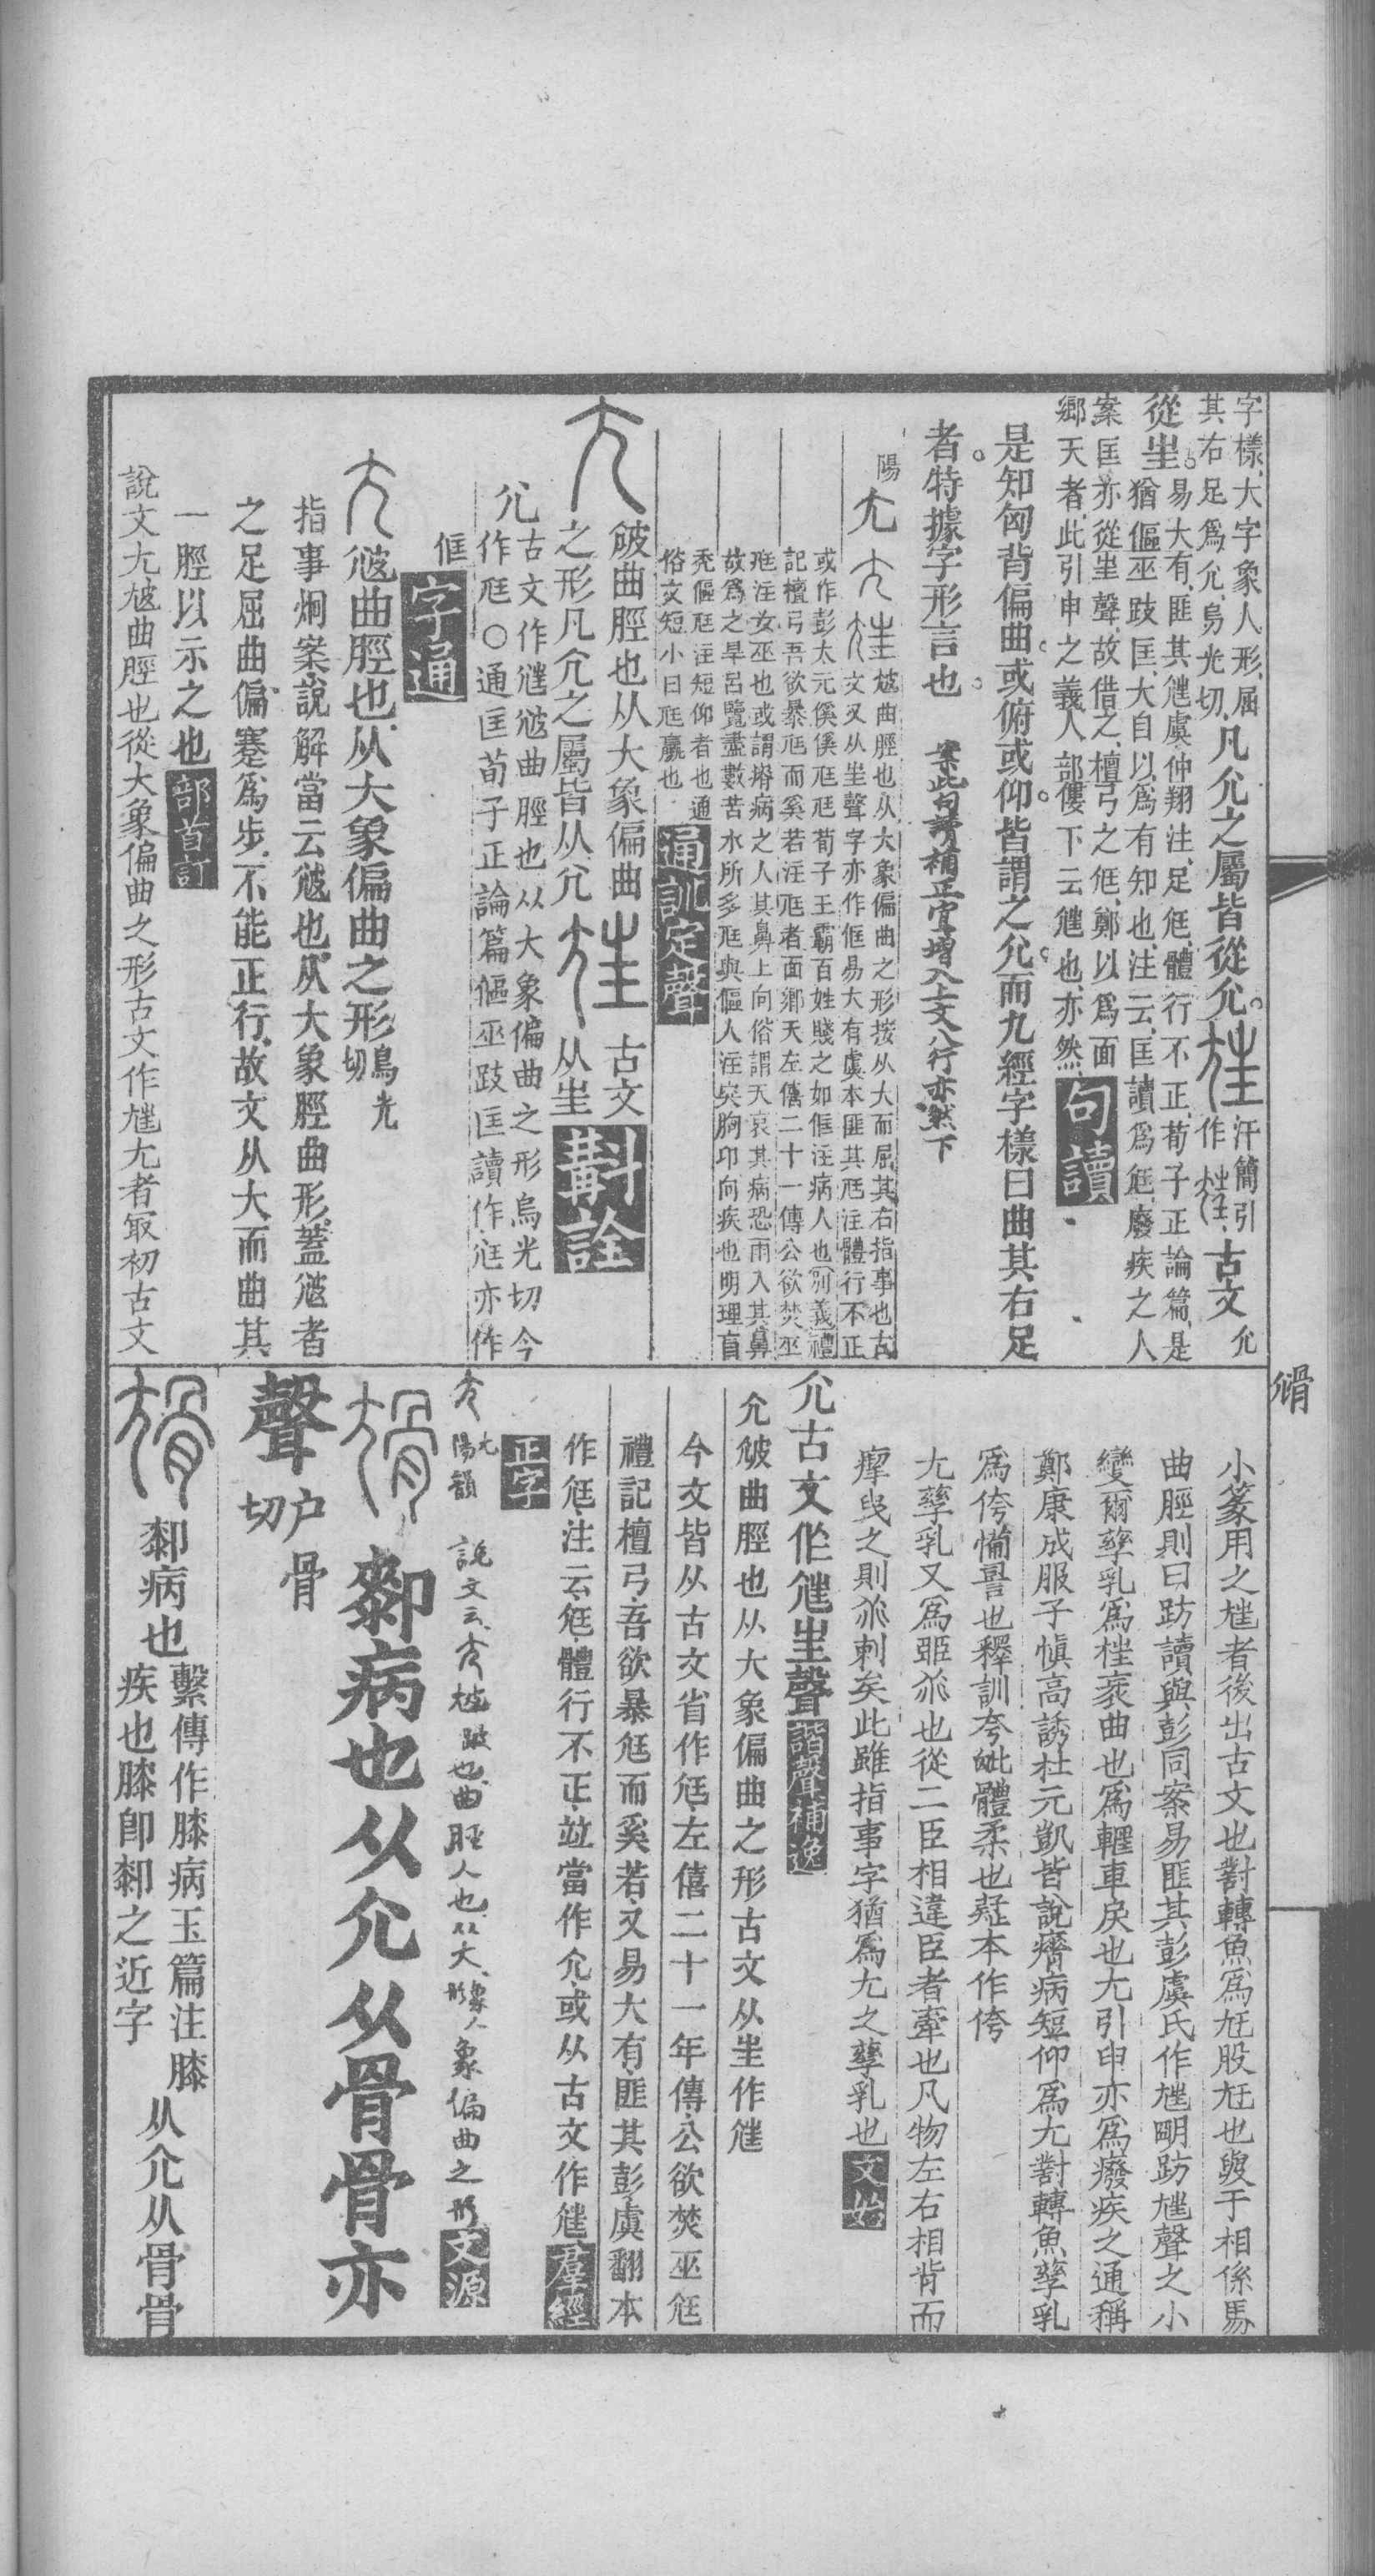 字樣大字象人形屈
其右足爲尣烏光切凡尣之屬皆從尣
汗簡引
作
古文
尣
從㞷
易大有匪其尪虞仲翔注足尪體行不正荀子正論篇是
猶傴巫跂匡大自以爲有知也注云匡讀爲尪廢疾之人
案匡亦從㞷聲故借之檀弓之尪鄭以爲面
鄉天者此引申之義人部僂下云尪也亦然
句讀
是知匈背偏曲或俯或仰皆謂之尣而九經字樣曰曲其右足
者特據字形言也
案此句讀補正宜增入上文八行亦然下
陽
尢
曲脛也从大象偏曲之形按从大而屈其右指事也古
文又从㞷聲字亦作尪易大有虞本匪其尪注體行不正
或作彭太元傒傒尪尪荀子王霸百姓賤之如尪注病人也別義禮
記檀弓吾欲暴尪而奚若注尪者面鄉天左僖二十一傳公欲焚巫
尪注女巫也或謂瘠病之人其鼻上向俗謂天哀其病恐雨入其鼻
故爲之旱呂覽盡數苦水所多尪與傴人注突胸卬向疾也明理盲
禿傴尪注短仰者也通
俗文短小曰尪羸也
通訓定聲
曲脛也从大象偏曲
之形凡尣之屬皆从尣
古文
从㞷
斠詮
尣
古文作尪曲脛也从大象偏曲之形烏光切今
作尪〇通匡荀子正論篇傴巫跂匡讀作尪亦作
尪
字通
曲脛也从大象偏曲之形
烏光
切
指事炯案說解當云也从大象脛曲形蓋者
之足屈曲偏蹇爲步不能正行故文从大而曲其
一脛以示之也
部首訂
說文尢曲脛也從大象偏曲之形古文作尢者最初古文
尳
小篆用之者後出古文也對轉魚爲尫股尫也與于相係馬
曲脛則曰跨讀與彭同案易匪其彭虞氏作尪明跨尪聲之小
變爾孳乳爲枉衺曲也爲軭車戾也尢引申亦爲癈疾之通稱
鄭康成服子慎高誘杜元凱皆說瘠病短仰爲尢對轉魚孳乳
爲侉備䛐也釋訓夸毗體柔也疑本作侉
尢孳乳又爲臦乖也從二臣相違臣者牽也凡物左右相背而
之則乖剌矣此雖指事字猶爲尢之孳乳也
文始
尣古文作尪㞷聲
諧聲補逸
尣曲脛也从大象偏曲之形古文从㞷作尪
今文皆从古文省作尪左僖二十一年傳公欲焚巫尪
禮記檀弓吾欲暴尪而奚若又易大有匪其彭虞翻本
作尪注云尪體行不正竝當作尣或从古文作尪
羣經
正字
尢
陽韻
說文云跛也曲脛人也从大象人形象偏曲之形
文源
病也从尣从骨骨亦
聲
戶骨
切
病也
繫傳作膝病玉篇注膝
疾也膝卽之近字
从尣从骨骨